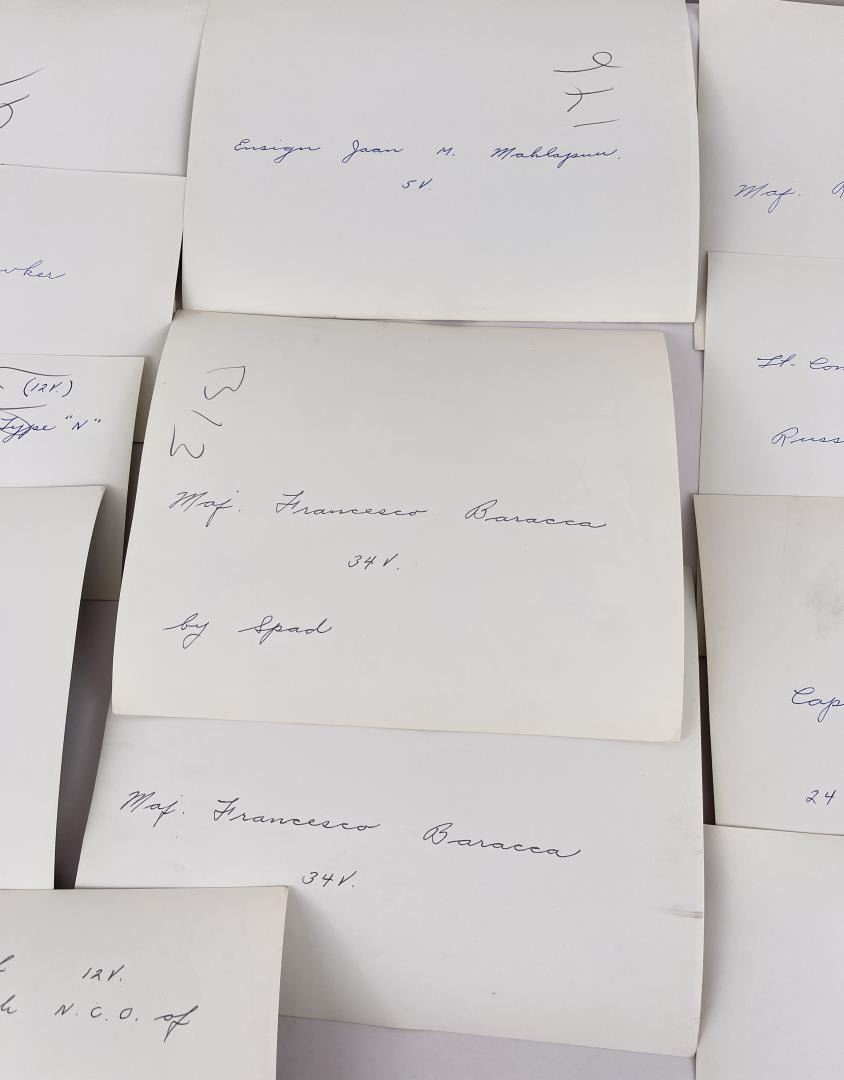 Ensign Jaan M. Mahlapuu.
5 V.
Maj.
wker
Lt. Com
(12V.)
Type "N"
Russ
B/2
Maj. Francesco Baracca
34 V.
by Spad
Cap
24
Maj. Francesco Baracca
34 V.
12 V.
N. C. O. of